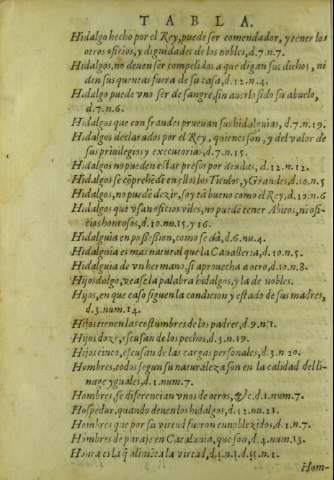 TABLA.
Hidalgo hecho por el Rey, puede ser comendador, y tener los
otros oficios, y dignidades de los nobles, d.7.n.7.
Hidalgos, no deuen ser compelidos a que digan sus dichos, ni
den sus quentas fuera de su casa, d.12.n.4.
Hidalgo puede vno ser de sangre, sin auerlo sido su abuelo,
d.7.n.6.
Hidalgos que con fraudes prueuan sus hidalguias, d.7.n.19.
Hidalgos declarados por el Rey, quienes son, y del valor de
sus priuilegios y executorias, d.7.n.15.
Hidalgos no pueden estar presos por deudas, d.12.n.12.
Hidalgos se cōprehēdē en ellos los Titulos, y Grandes, d.10.n.5
Hidalgos, no puedē dezir, soy tā bueno como el Rey, d.10.n.6
Hidalgos que vsan oficios viles, no puedē tener Abitos, ni ofi-
cios honrosos, d.10.nu.15. y 16.
Hidalguia en possession, como se dá, d.6.nu.4.
Hidalguia es mas natural que la Caualleria, d.10.n.5.
Hidalguia de vn hermano, si aprouecha a otro, d.10.n.8.
Hijosdalgo, vease la palabra hidalgos, y la de nobles.
Hijos, en que caso siguen la condicion y estado de sus madres,
d.3.num.14.
Hijos tienen las costumbres de los padres, d.9.n.1.
Hijos doze, escusan de los pechos, d.3.n.19.
Hijos cinco, escusan de las cargas personales, d.3.n.20.
Hombres, todos segun su naturaleza son en la calidad del li-
nage yguales, d.1.num.7.
Hombres, se diferencian vnos de otros, &c.d.1.num.7.
Hospedar, quando deuen los hidalgos, d.12.nu.21.
Hombres que por su virtud fueron ennoblezidos, d.1.n.7.
Hombres de paraje en Catalunia, que son, d.4.num.13.
Honra es la q̄ alimēta la virtud, d.1.n.1. d.13.n.1.
Hom-